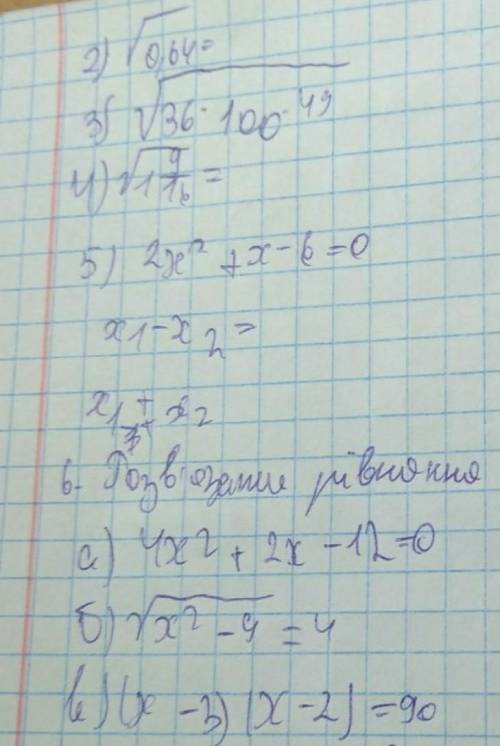 2) √0,64=
3) √36·100·49
4) √1 9/16 =
5) 2x² + x - 6 = 0
x₁ - x₂ =
x₁ + x₂
6. Розв'язание рівняння
a) 4x² + 2x - 12 = 0
б) √x² - 9 = 4
в) (x - 3)(x - 2) = 90